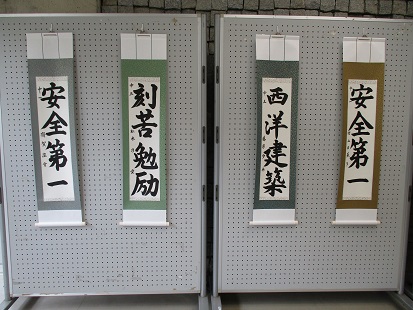 安全第一
西洋建築
刻苦勉励
安全第一